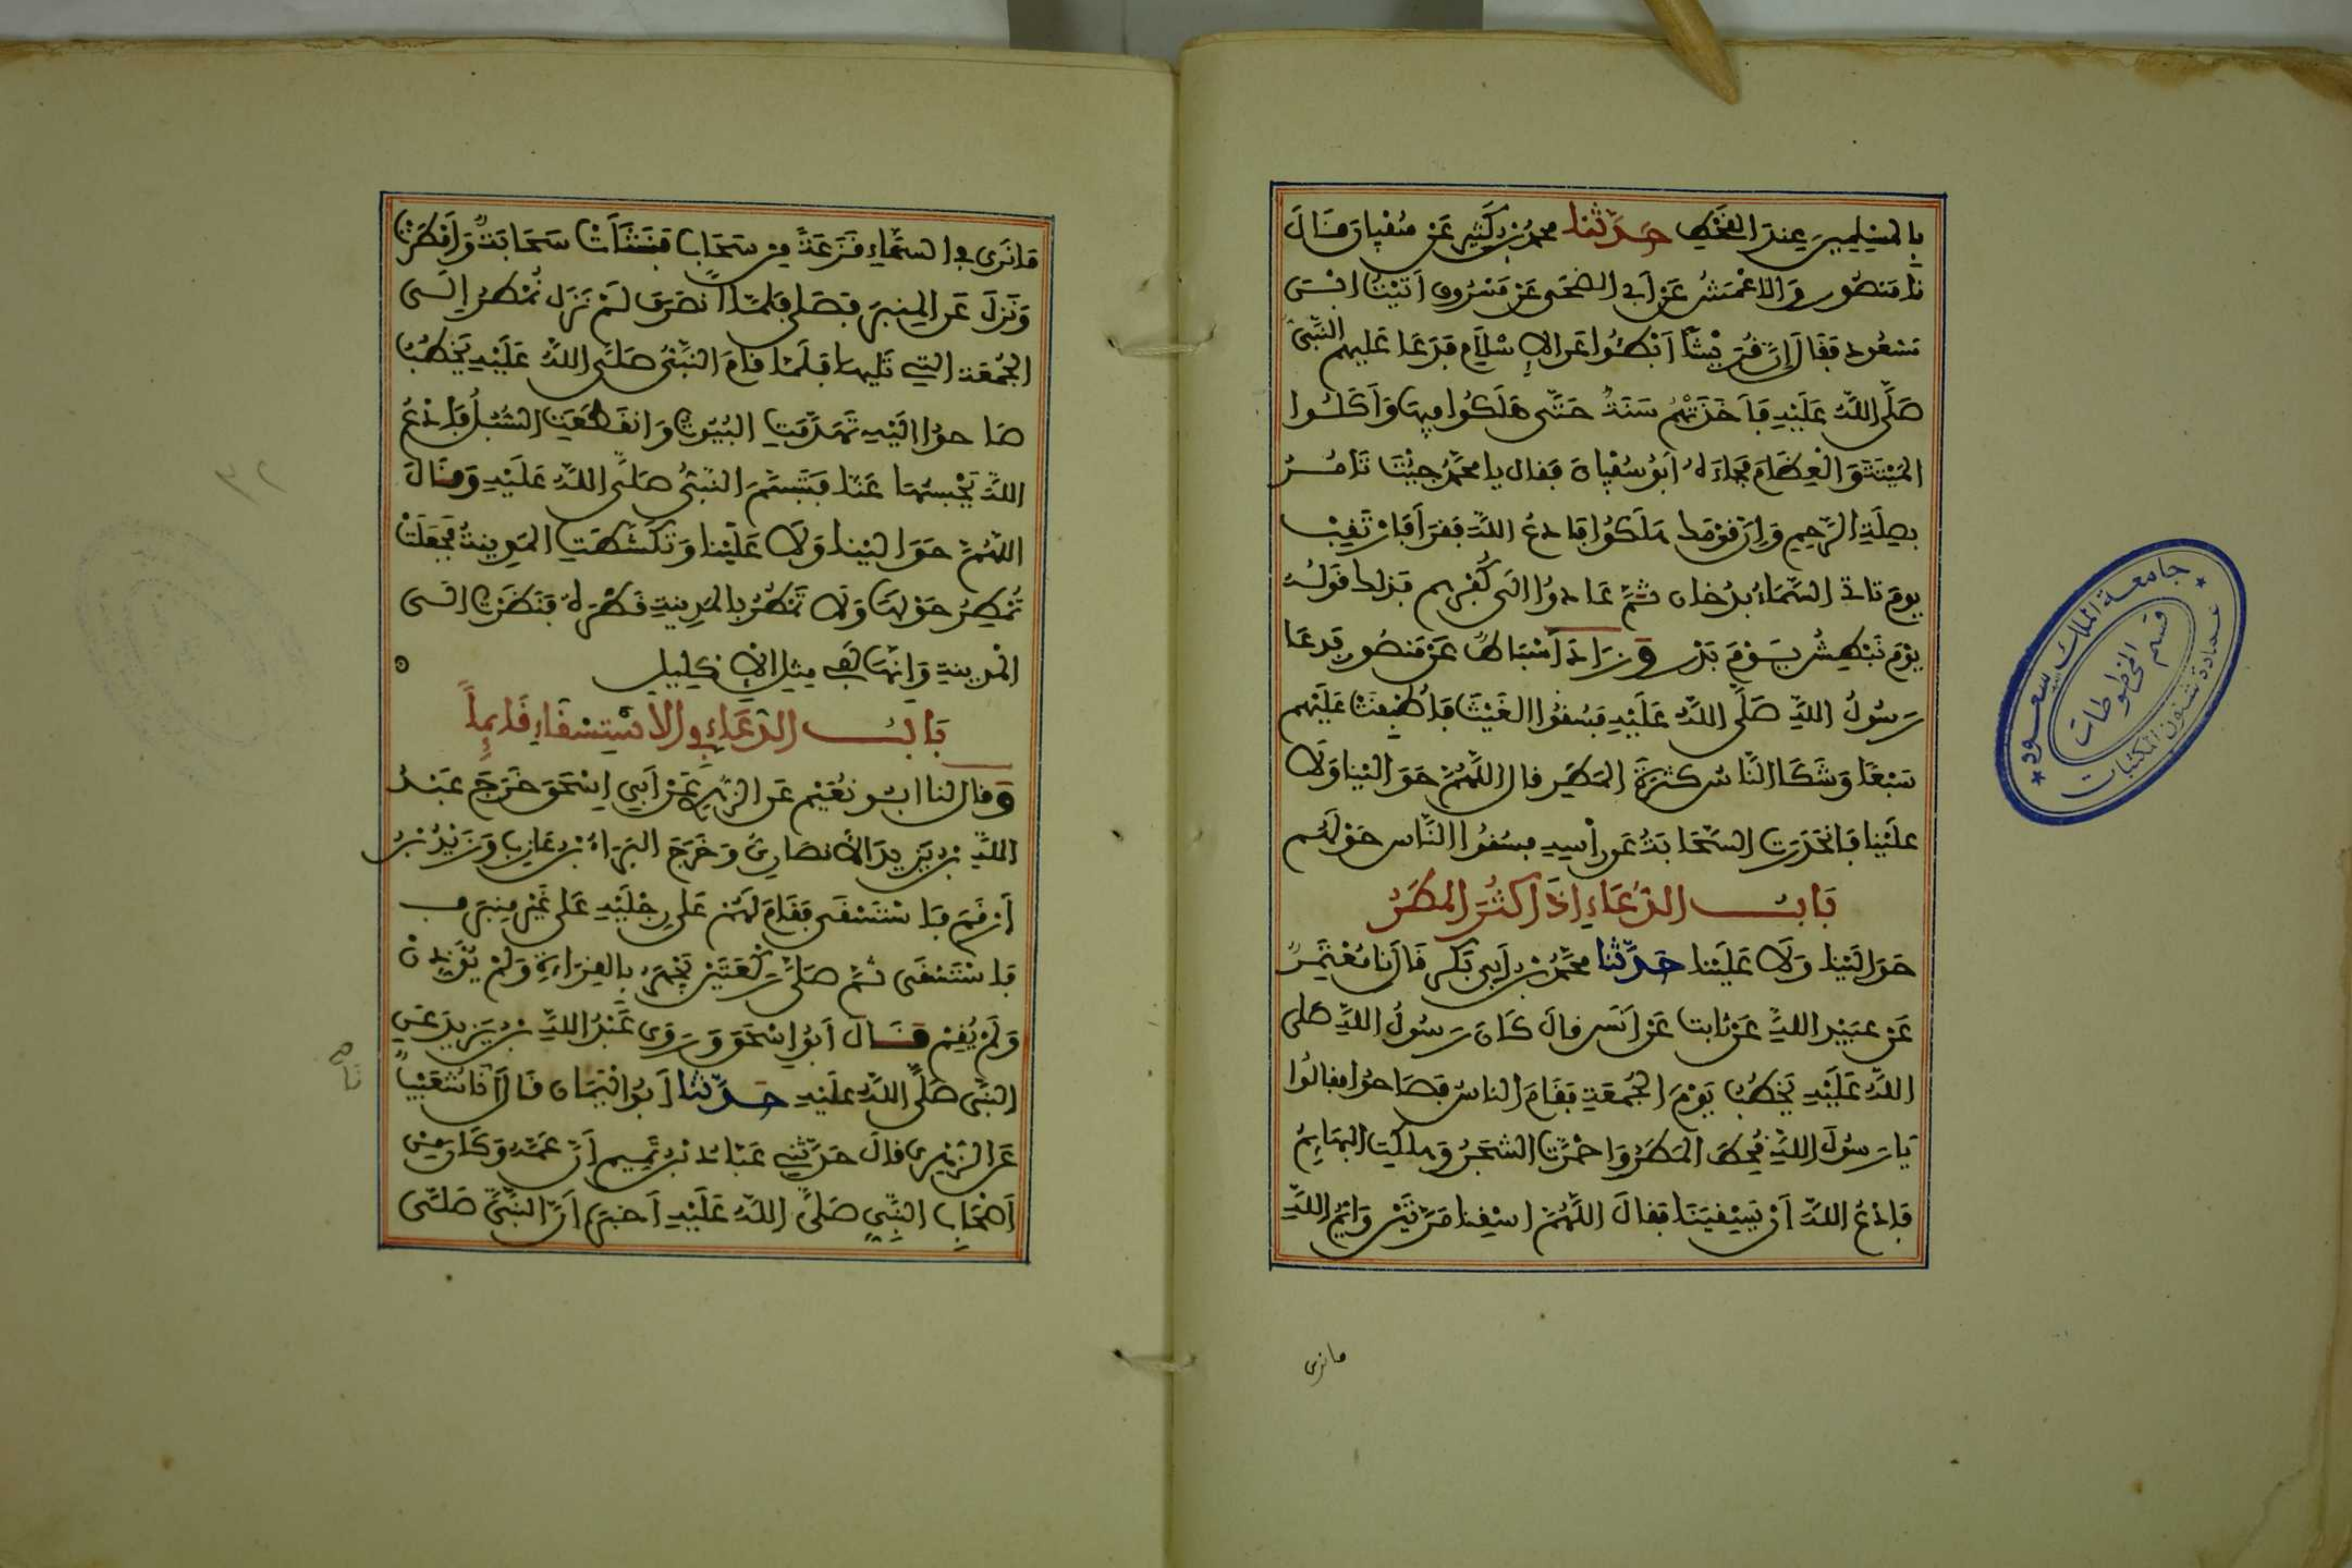 بالمسلمين عند القحط حدثنا محمد بن كثير عن سفيان قال
نا منصور والاعمش عن أبي الضحى عن مسروق أتيت ابن
مسعود فقال إن قريشا أبطئوا عن الإسلام فدعا عليهم النبي
صلى الله عليه فأخذتهم سنة حتى هلكوا فيها وأكلوا
الميتة والعظام فجاءه أبو سفيان فقال يا محمد جئت تامر
بصلة الرحم وإن قومك هلكوا فادع الله فقرأ فارتقب
يوم تاتي السماء بدخان ثم عادوا الى كفرهم فذلك قوله
يوم نبطش يوم بدر وزاد أسباط عن منصور فدعا
رسول الله صلى الله عليه فسقوا الغيث فأطبقت عليهم
سبعا وشكا الناس كثرة المطر قال اللهم حوالينا ولا
علينا فانحدرت السحابة عن رأسه فسقوا الناس حولهم
باب الدعاء إذا كثر المطر
حوالينا ولا علينا حدثنا محمد بن أبي بكر قال نا معتمر
عن عبيد الله عن ثابت عن أنس قال كان رسول الله صلى
الله عليه يخطب يوم الجمعة فقام الناس فصاحوا فقالوا
يا رسول الله قحط المطر واحمرت الشجر وهلكت البهائم
فادع الله أن يسقينا فقال اللهم اسقنا مرتين وايم الله
ما نرى
ما نرى في السماء قزعة من سحاب فنشأت سحابة وأمطرت
ونزل عن المنبر فصلى فلما انصرف لم تزل تمطر إلى
الجمعة التي تليها فلما قام النبي صلى الله عليه يخطب
صاحوا اليه تهدمت البيوت وانقطعت السبل فادع
الله يحبسها عنا فتبسم النبي صلى الله عليه وقال
اللهم حوالينا ولا علينا وتكشطت المدينة فجعلت
تمطر حولها ولا تمطر بالمدينة قطرة فنظرت الى
المدينة وإنها لفي مثل الإكليل
باب الدعاء في الاستسقاء قايما
وقال لنا ابو نعيم عن الزهير عن أبي إسحق خرج عبد
الله بن يزيد الأنصاري وخرج البراء بن عازب وزيد بن
أرقم فاستسقى فقام لهم على رجليه على غير منبر
فاستسقى ثم صلى ركعتين يجهر بالقراءة ولم يؤذن
ولم يقم قال أبو إسحق وروى عبد الله بن يزيد عن
النبي صلى الله عليه حدثنا أبو اليمان قال أنا شعيب
عن الزهري قال حدثني عباد بن تميم أن عمه وكان من
أصحاب النبي صلى الله عليه أخبره أن النبي صلى
جامعة الملك سعود
قسم المخطوطات
عمادة شئون المكتبات